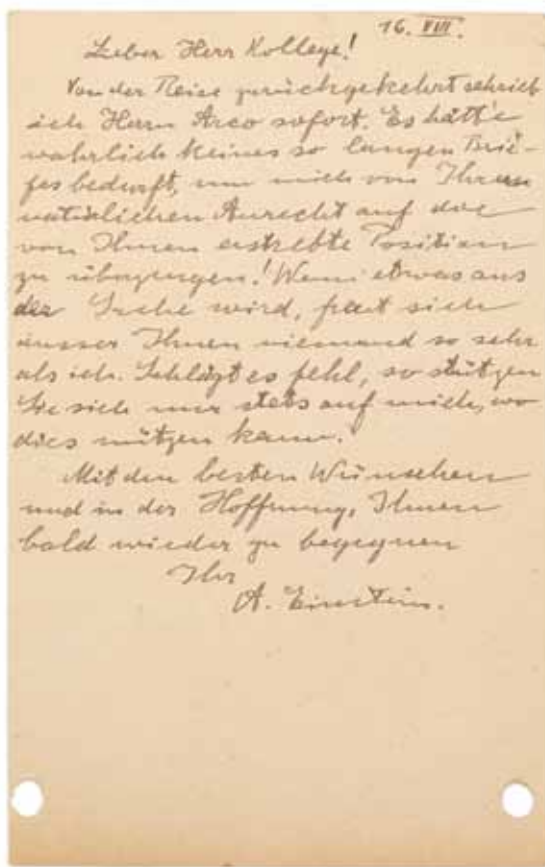 16. VIII.
Lieber Herr Kollege!
Von der Reise zurückgekehrt schrieb
ich Herrn Arco sofort. Es hätte
wahrlich keines so langen Brie-
fes bedurft, um mich von Ihrem
natürlichen Anrecht auf die
von Ihnen erstrebte Position
zu überzeugen! Wenn etwas aus
der Sache wird, freut sich
ausser Ihnen niemand so sehr
als ich. Schlägt es fehl, so stützen
Sie sich nur stets auf mich, wo
dies nützen kann.
Mit den besten Wünschen
und in der Hoffnung, Ihnen
bald wieder zu begegnen
Ihr
A. Einstein.